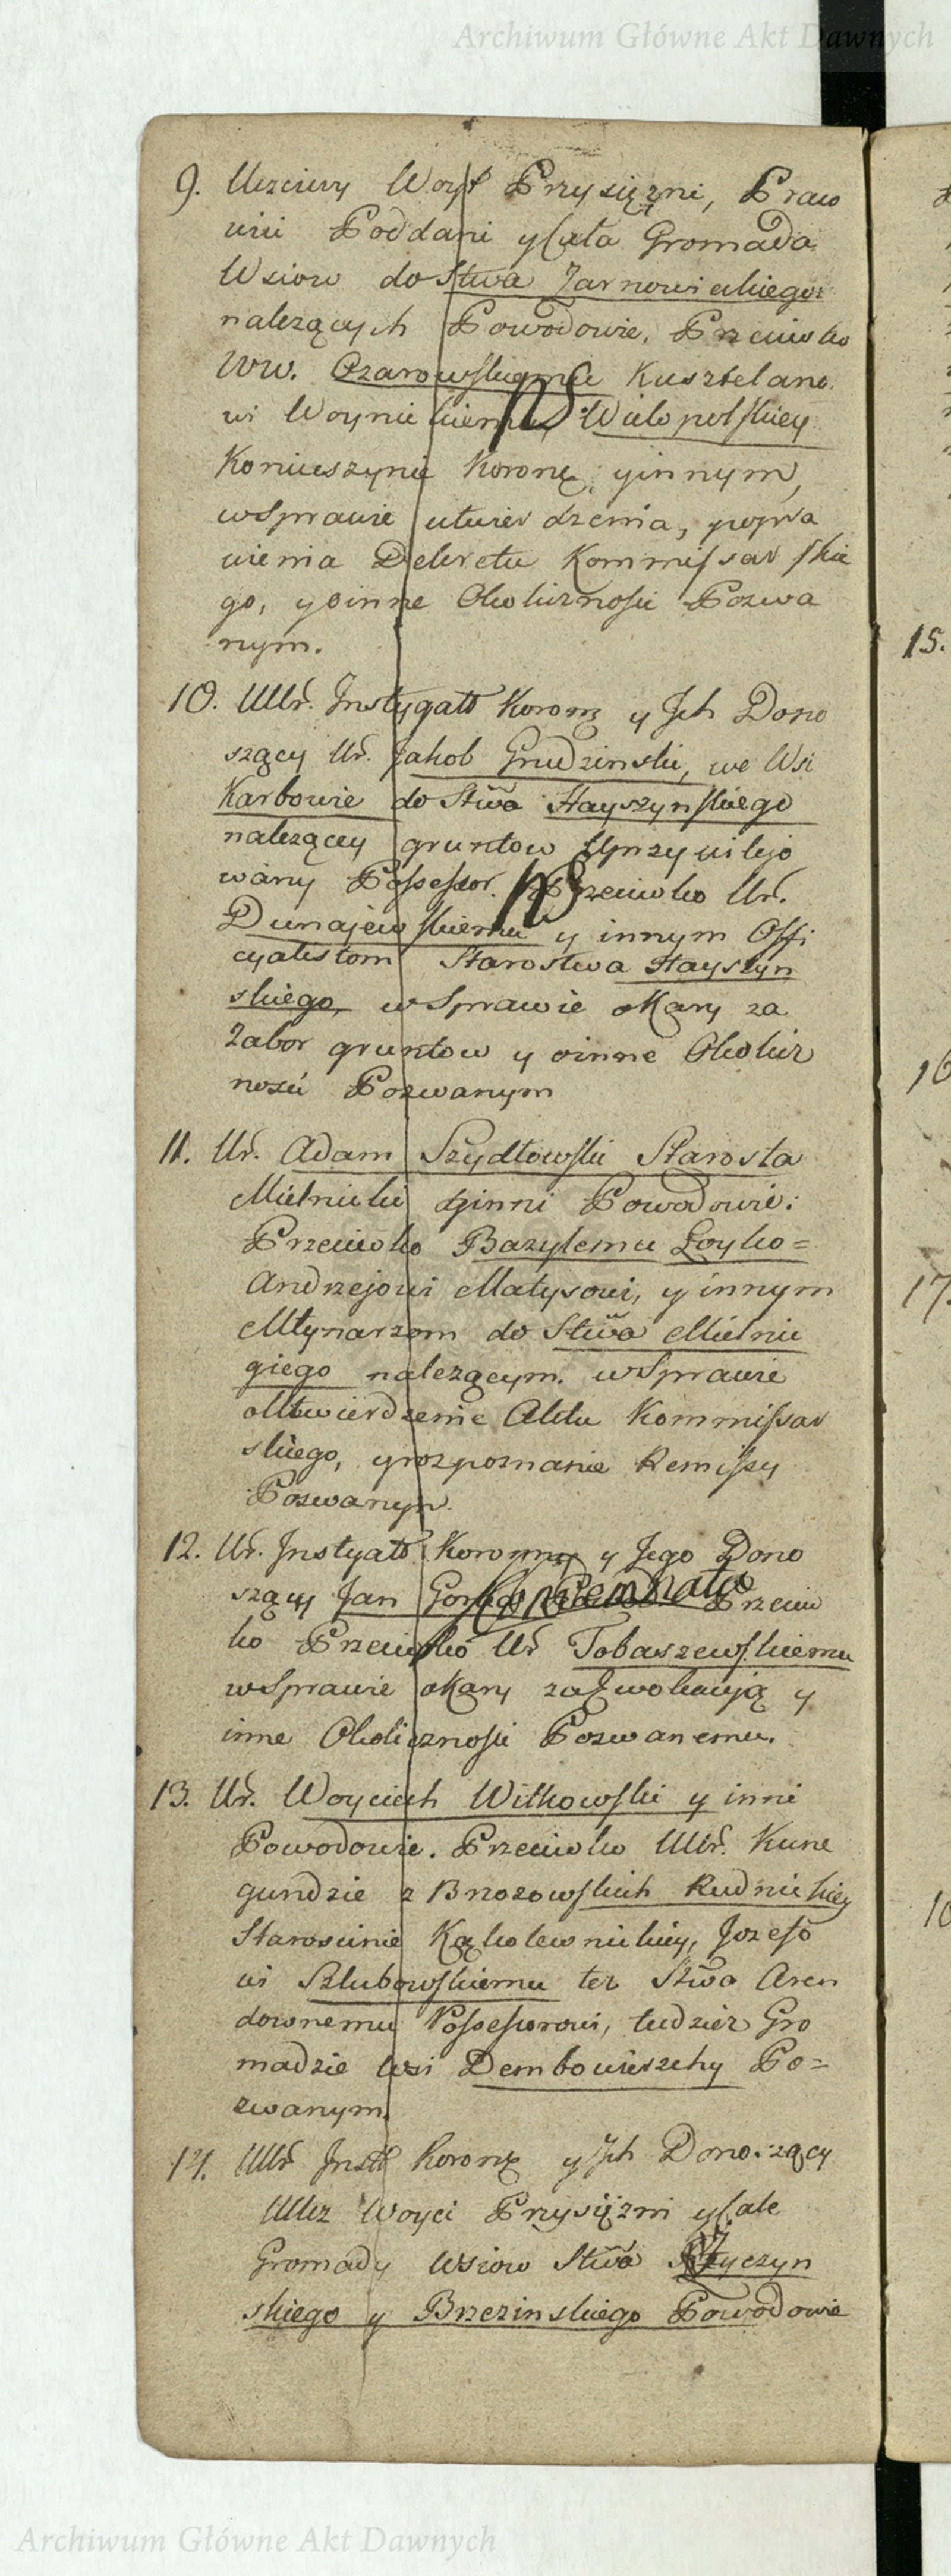 Archiwum Główne Akt Dawnych
9. Uczciwy Woyt Przysiężni, Praw
wni Poddani y Cała Gromada
Wsiow do Stwa Zarnowieckiego
nalezących Powodowie. Przeciwko
WW. Ozarowskiemu Kasztelano
wi Woynickiemu, Wielopolskiey
Koniuszynie Koronę. yinnym,
wSprawie utwierdzenia, ypopra
wienia Dekretu Kommissarskie
go, yoinne Okoliczności Pozwa
nym.
10. UUr. Instygatt Koronę y Ich Dono
szący Ur. Jakob Grudzinski, we Wsi
Karbowie do Stwa
nalezącey gruntow Uprzywilejo
wany Possessor. Przeciwko Ur.
Dunajewskiemu y innym Offi
cyalistom Starostwa
skiego, wSprawie oKary za
Zabor gruntow y oinne Okolicz
ności Pozwanym
11. Ur. Adam Szydłowski Starosta
Mielnicki yinni Powodowie:
Przeciwko Bazylemu Loyko=
Andrzejowi Matysowi, y innym
Młynarzom do Stwa Mielnic
giego nalezącym. wSprawie
oUtwierdzenie Aktu Kommissar
skiego, yrozpoznanie Remissy
Pozwanym.
12. Ur. Instygatt Koronny y Jego Dono
szący Jan Condemnata Przeciw
ko Przeciwko Ur Tobaszewskiemu
wSprawie oKary y
inne Okoliczności Pozwanemu.
13. Ur. Woyciech Witkowski y inni
Powodowie. Przeciwko UUr. Kune
gundzie z Brzozowskich Rudnickiey
Staroscinie Kąkolewnickiey, Jozefo
wi Szlubowskiemu teź Stwa Aren
downemu Possessorowi, tudziez Gro
madzie Wsi Dembowierzchy Po=
zwanym.
14. UUr Instt Koronę y Ich Donoszący
UUcz Woyci Przysiężni y Całe
Gromady Wsiow Stwa
skiego y Brzezinskiego Powodowie
15.
16
17.
Archiwum Główne Akt Dawnych